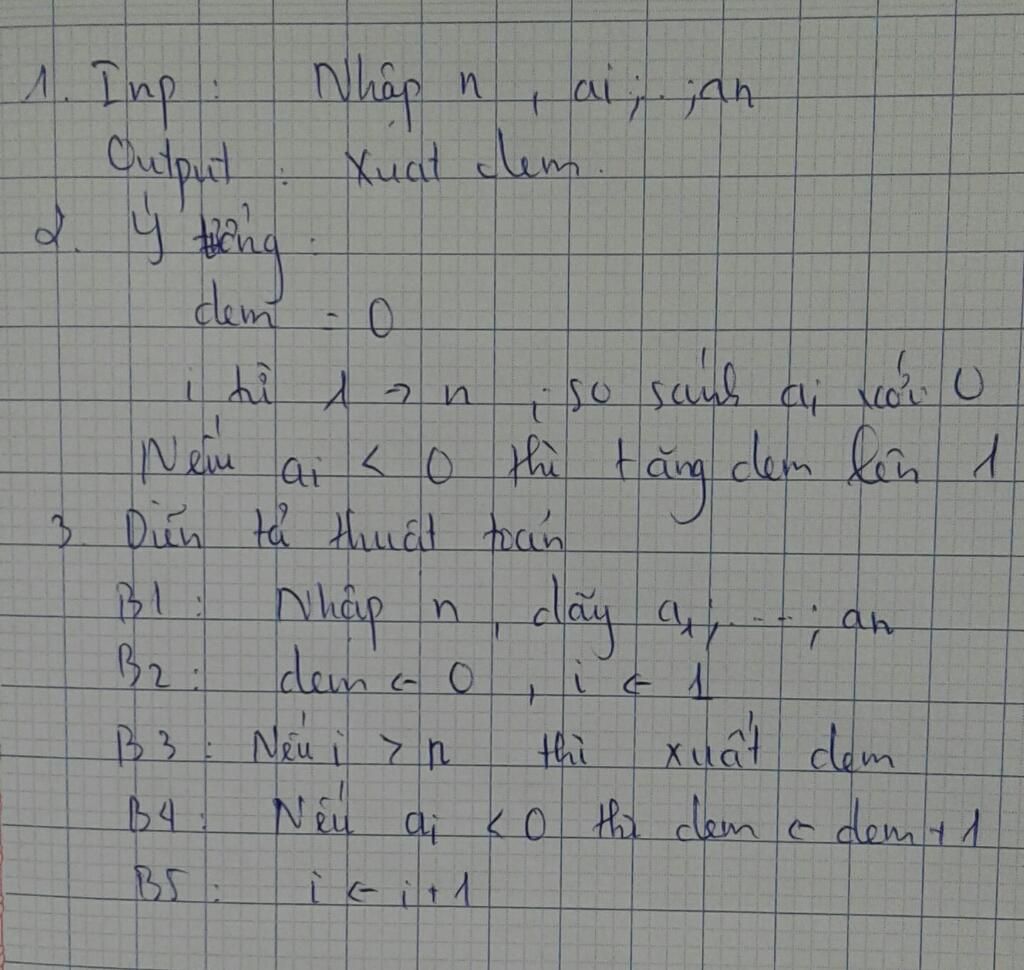 1. Inp : Nhập n , ai ; . ; an
Output : xuất dem.
2. Ý tưởng :
dem = 0
i từ 1 → n , so sánh ai với 0
Nếu ai < 0 thì tăng dem lên 1
3. Diễn tả thuật toán
B1 : Nhập n, dãy a1 ; ... ; an
B2 : dem ← 0 , i ← 1
B3 : Nếu i > n thì xuất dem
B4 : Nếu ai < 0 thì dem ← dem + 1
B5 : i ← i + 1